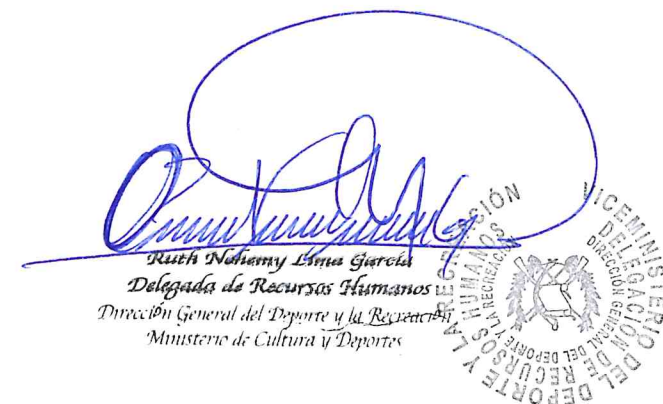 Ruth Nohemy Lima García
Delegada de Recursos Humanos
Dirección General del Deporte y la Recreación
Ministerio de Cultura y Deportes
VICEMINISTERIO DEL DEPORTE Y LA RECREACIÓN
DELEGACIÓN DE RECURSOS HUMANOS
DIRECCIÓN GENERAL DEL DEPORTE Y LA RECREACIÓN